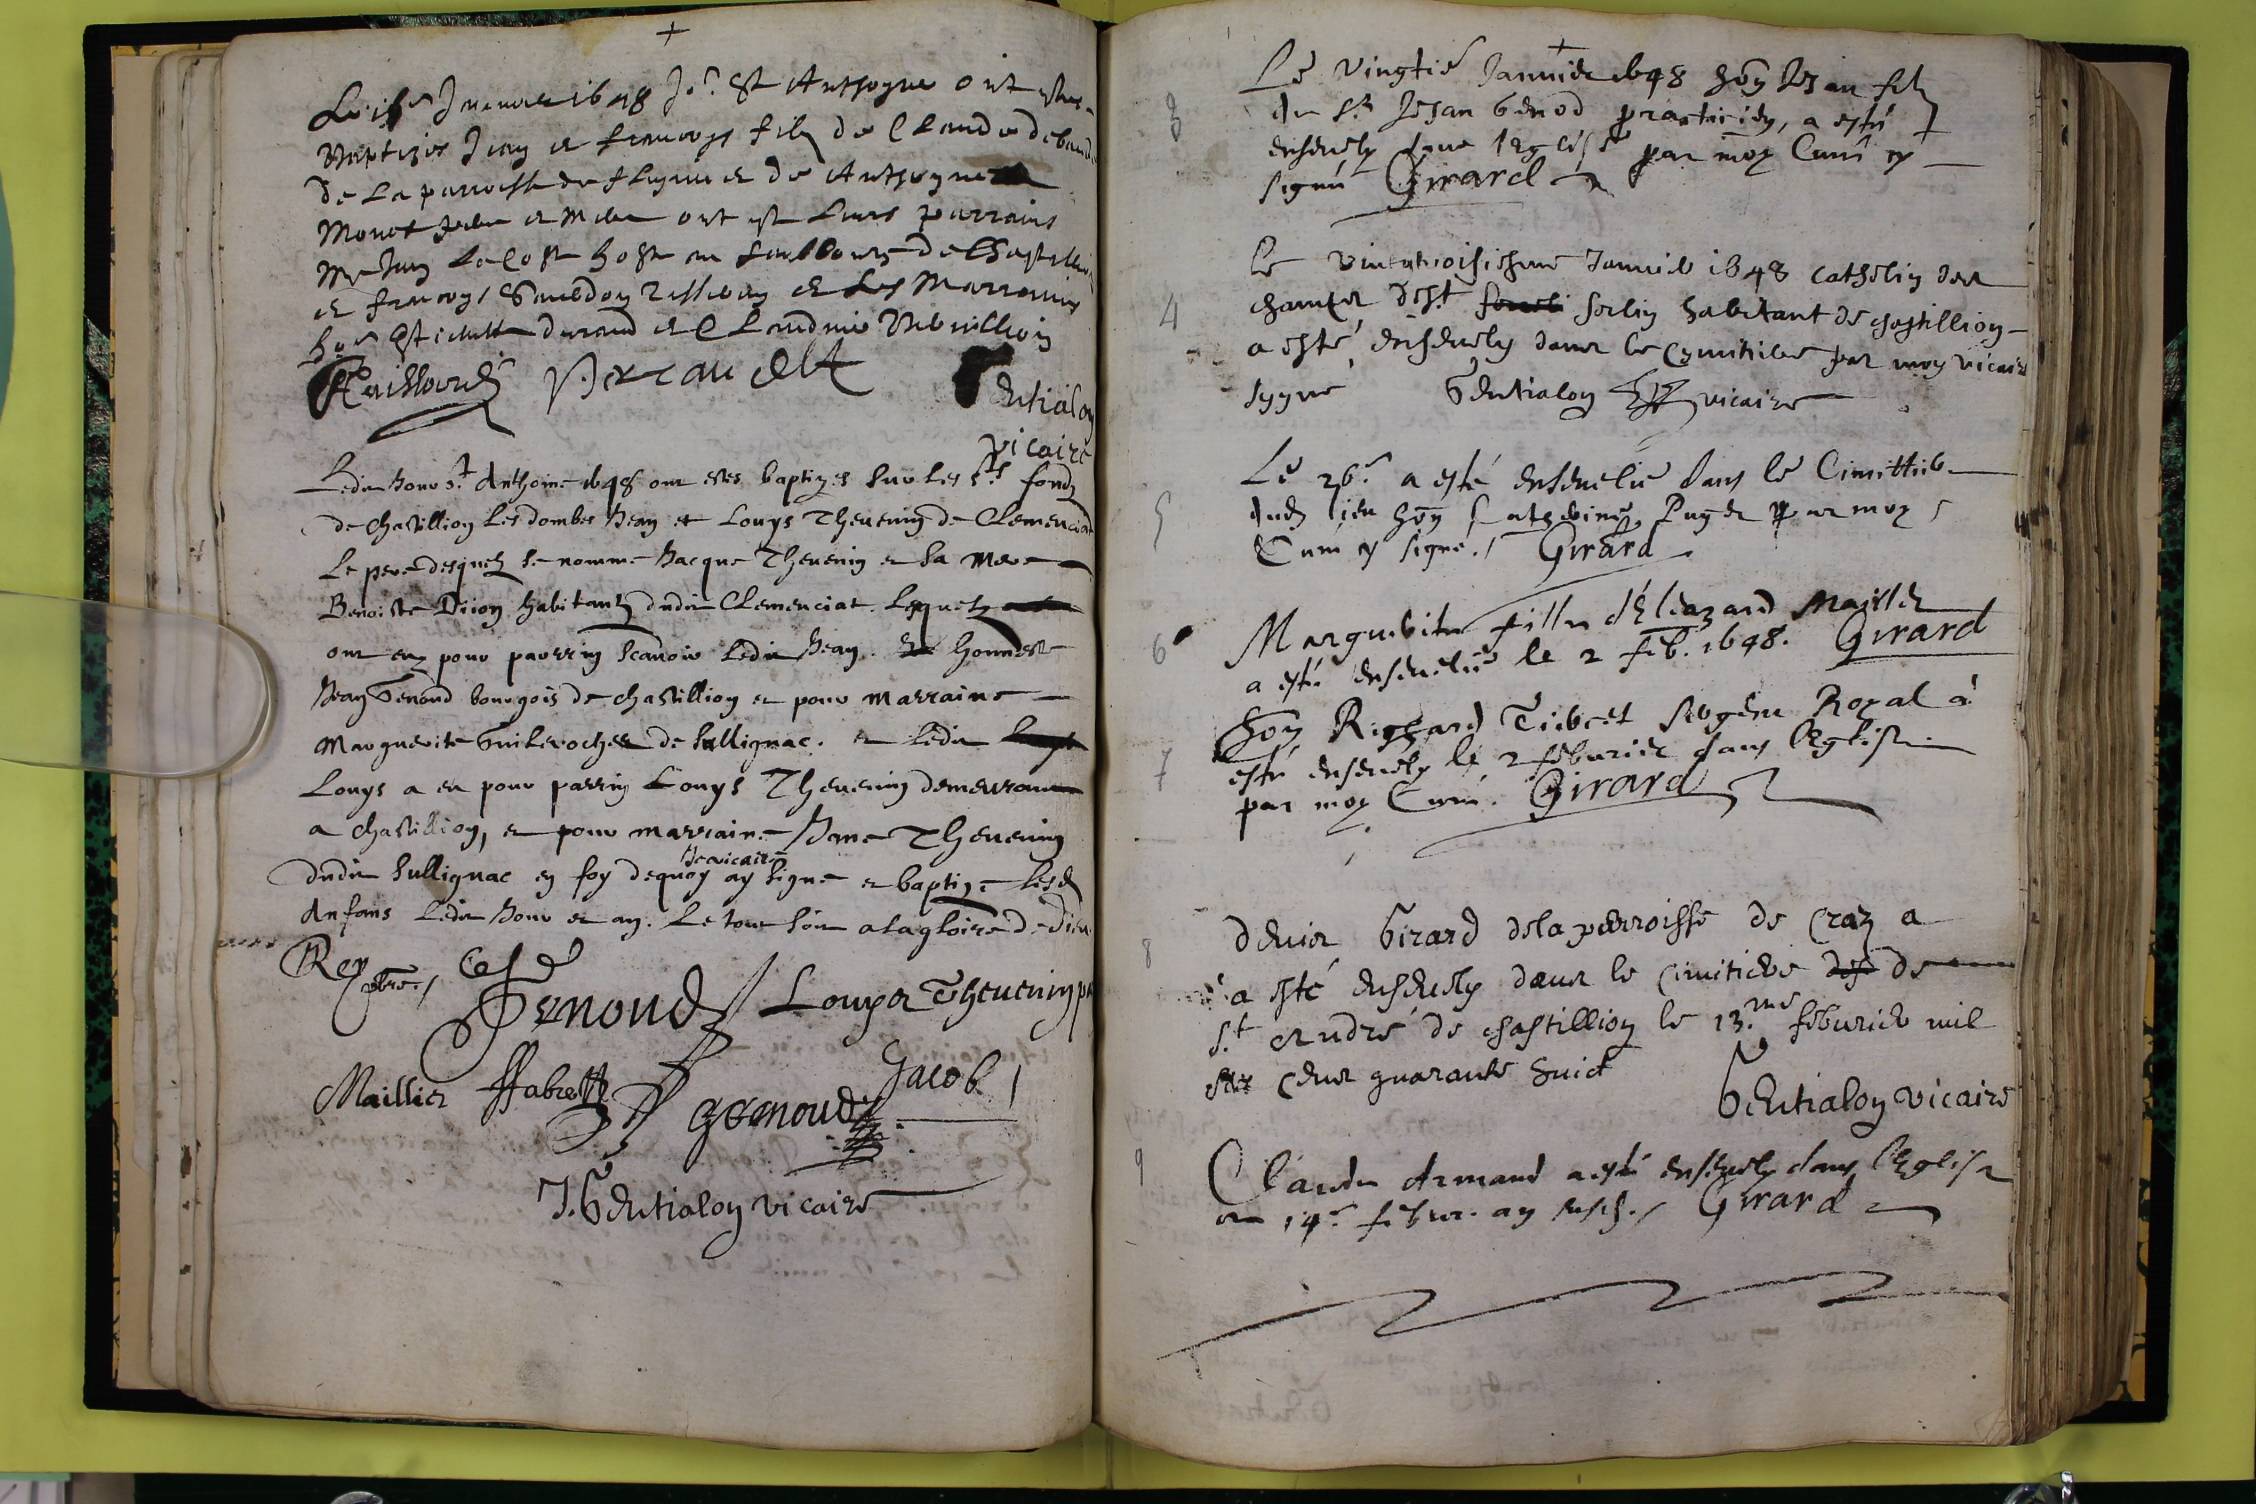 Janvier 1648 St Anthoyne ont estes
Baptizes Jean et francoys filz de Claude
De La parroisse de et de Anthoynette
Monet pere et Mere ont est Leurs parrains
Mre Jean hoste au faulbourg de Chastillion
et francoys et Les Marraines
durand et Claudine
Vicaire
Ledit Jour St Anthoine 1648 ont estes baptizes sur les Sts fonds
de chastillion les dombes Jean et Louys Thevenin de Clemenciat
Le pere desquelz se nomme Jacque Thevenin et sa mere
Benoiste habitantz dudit Clemenciat. Lesquelz
ont eu pour parrin scavoir ledit Jean. honneste
Jean Genoud bourgois de chastillion et pour marraine
Marguerite de Sullignac. et ledit
Louys a eu pour parrin Louys Thevenin demeurant
a chastillion, et pour marraine Jane Thevenin
Je vicaire
dudit Sullignac en foy dequoy ay signe et baptize lesd
Anfans ledit Jour et an. Le tout soit a la gloire de Dieu
Rey
pbre
Genoud Louys Thevenin
Maillier ffabre genoud Jacob
J. Gentialon vicaire
3
Le vingtie Janvier 1648 hon Jean filz
du Sr Jean Genod practicien, a esté
ensevely dans leglise par moy Curé cy
signé Girard
4
Le vintroisiesme Janvier 1648 catherin
dest sorlin habitant de chastillion
a esté ensevely dans le cymitiere par moy vicaire
sygné Gentialon vicaire
5
Le 26e a esté ensevelie dans le Cimittiere
dud lieu hon Catherine Puget par moy
Curé cy signé. Girard
6
Marguerite fille d'Eleazard Maillet
a esté ensevelie le 2 feb. 1648. Girard
7
hon Richard Tiercet sergent Royal a
esté ensevely le 2 feburier dans leglise
par moy Curé. Girard
8
denis Girard de la perroisse de Craz a
a esté ensevely dans le cimitiere de
St Andre de chastillion le 13.me feburier mil
six cens quarante huict
Gentialon vicaire
9
Claude Armand a esté ensevely dans leglise
le 14e febur. an susd. Girard